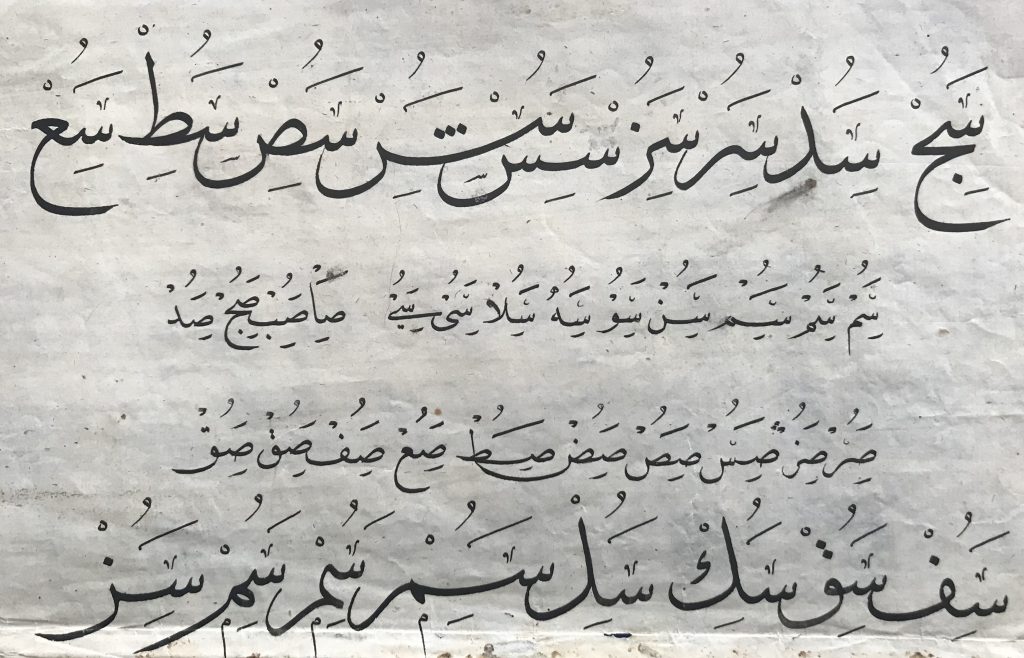 سَُِجْ سَُِدْ سَُِرْ سَُِزْ سَُِسْ سَُِشْ سَُِصْ سَُِطْ سَُِعْ
سَُِمْ سَُِمْ سَُِمْ سَُِنْ سَُِوْ سَُِهْ سَُِلاْ سَُِىْ سَُِےْ صَُِاْ صَُِبْ صَُِجْ صَُِدْ
صَُِرْ صَُِزْ صَُِسْ صَُِصْ صَُِضْ صَُِطْ صَُِعْ صَُِفْ صَُِقْ صَُِقْ
سَُِفْ سَُِقْ سَُِكْ سَُِلْ سَُِمْ سَُِمْ سَُِمْ سَُِنْ